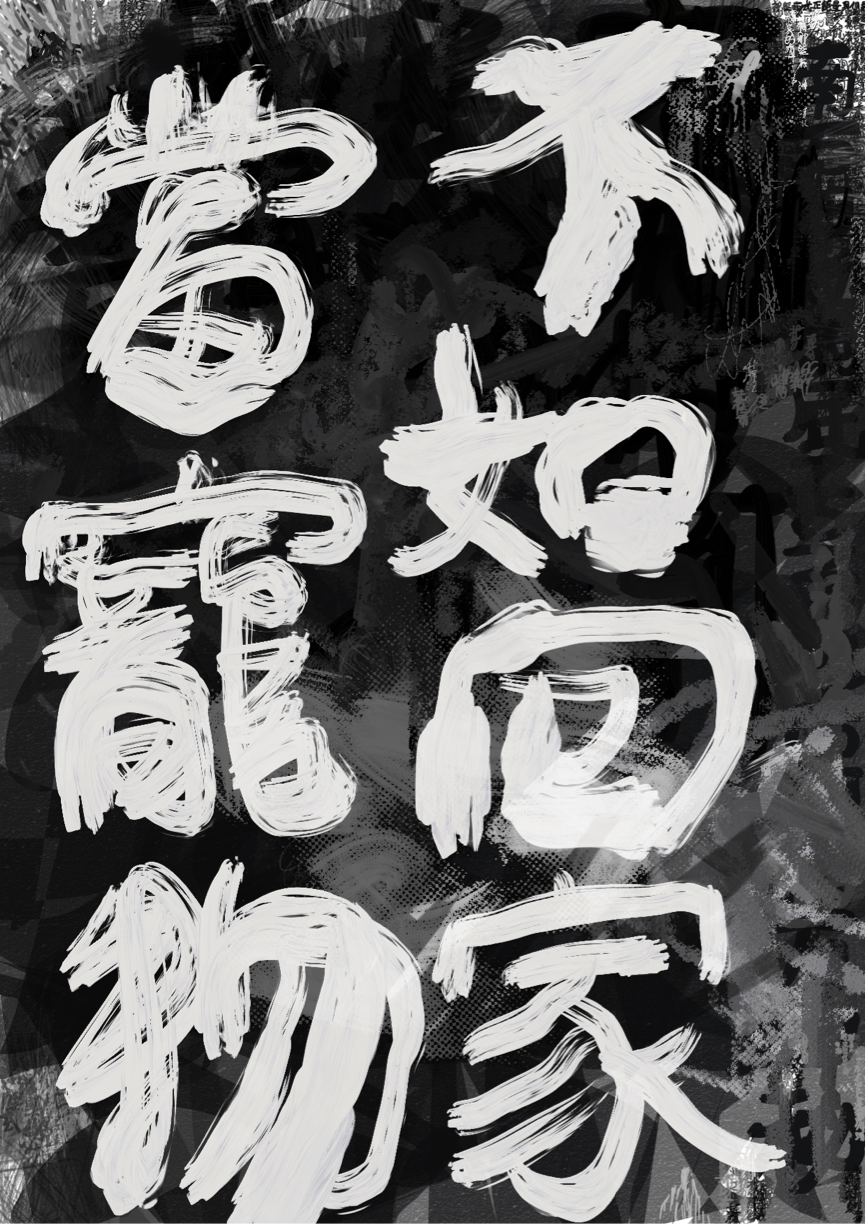 不如回家
當寵物